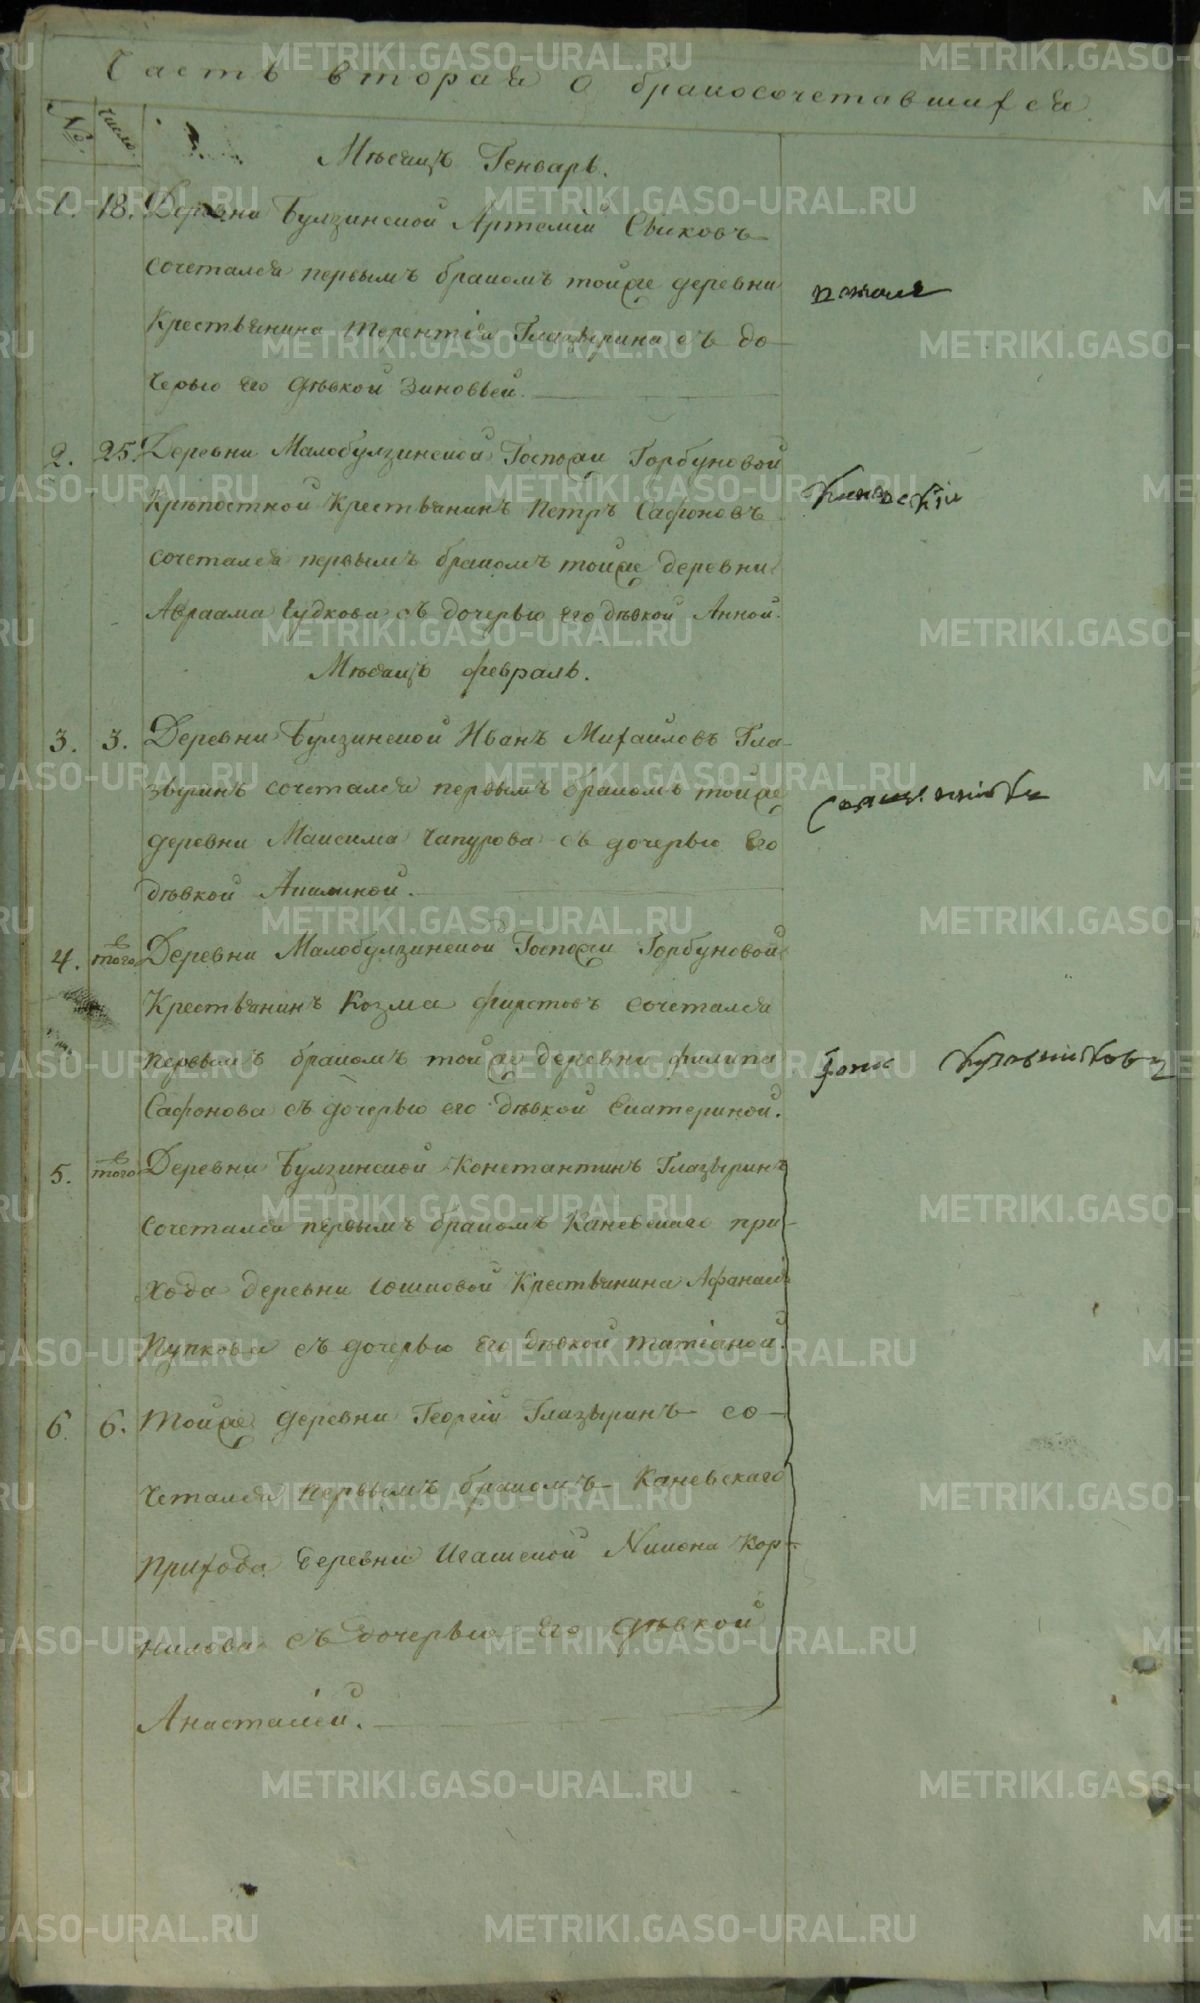 Часть вторая о бракосочетавшихся
№. число.
Мѣсяцъ Генварь.
1. 18. Деревни Булзинской Артемій Свиковъ
сочетался первымъ бракомъ тойже деревни
Крестьянина Терентія Глазырина съ до-
черью его дѣвкой Зиновьей.
2. 25. Деревни Малобулзинской Госпожи Горбуновой
Крѣпостной Крестьянинъ Петръ Сафоновъ
сочетался первымъ бракомъ тойже деревни
Авраама Чудкова съ дочерью его дѣвкой Анной.
Мѣсяцъ февраль.
3. 3. Деревни Булзинской Иванъ Михайловъ Гла-
зыринъ сочетался первымъ бракомъ тойже
деревни Максима Чапурова съ дочерью Его
дѣвкой Акилиной.
4. того Деревни Малобулзинской Госпожи Горбуновой
Крестьянинъ Козма сочетался
первымъ бракомъ тойже деревни филипа
Сафонова съ дочерью его дѣвкой Екатериной.
5. того Деревни Булзинской Константинъ Глазыринъ
сочетался первымъ бракомъ Каневскаго при-
хода деревни Юшковой Крестьянина Афанасія
Пупкова съ дочерью Его дѣвкой Татіаной.
6. 6. Тойже деревни Георгій Глазыринъ со-
четался первымъ бракомъ Каневскаго
прихода деревни Игашской Никона Кор-
нилова съ дочерью Его дѣвкой
Анастасіей.
METRIKI.GASO-URAL.RU